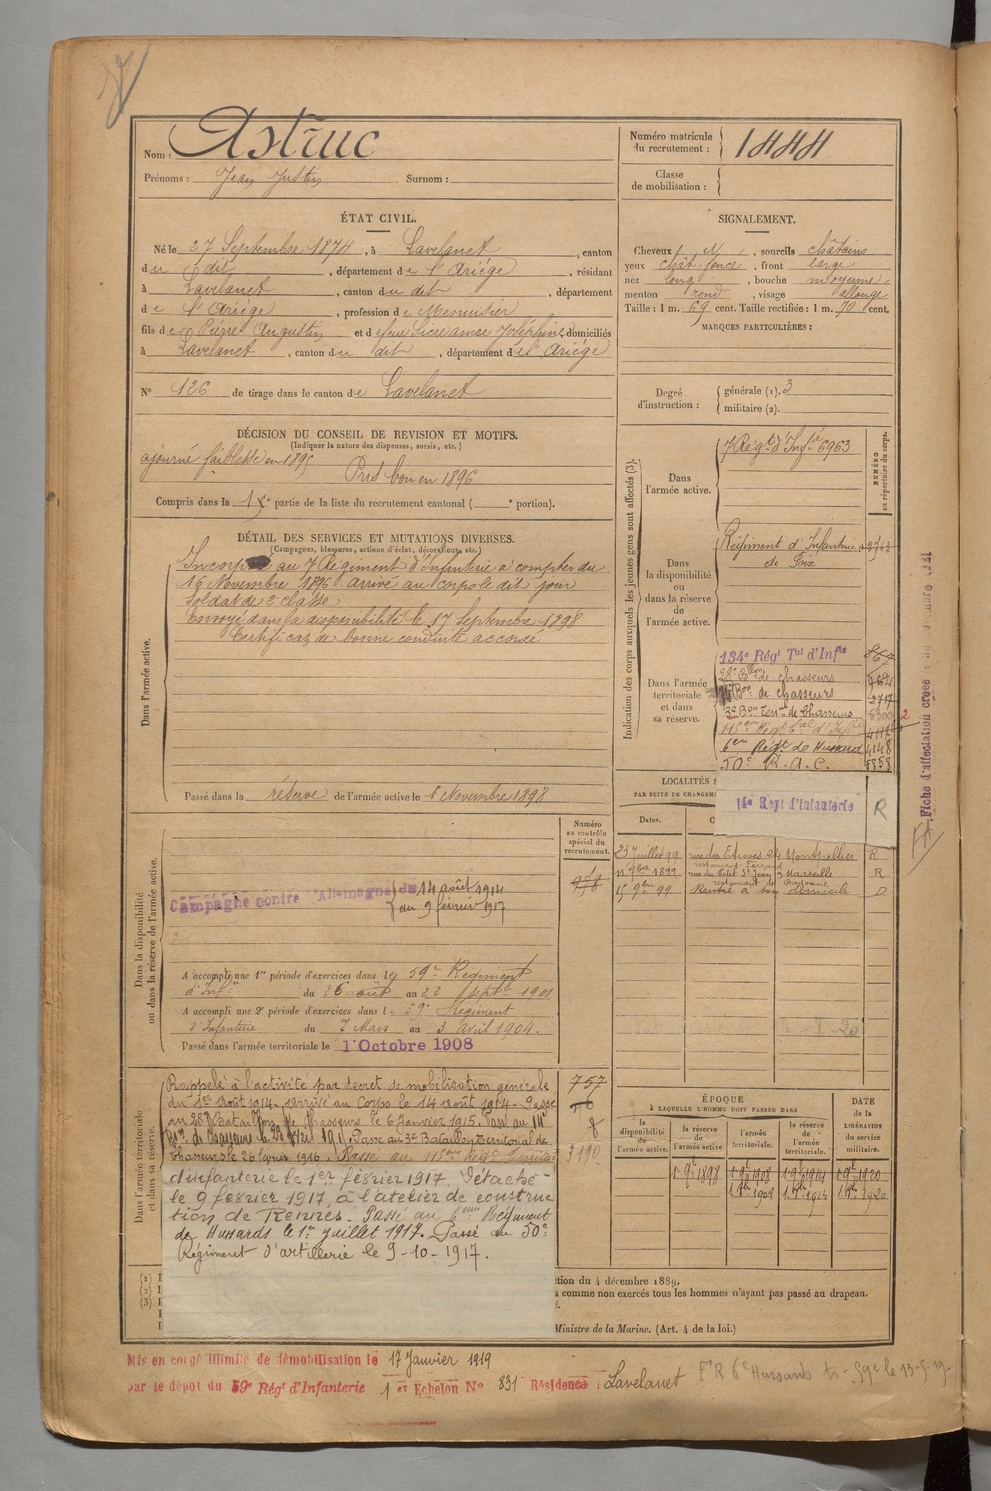 Nom : Astruc
Prénoms : Jean Justin Surnom :
Numéro matricule du recrutement : 1444
Classe de mobilisation :
ÉTAT CIVIL.
Né le 27 Septembre 1874, à Lavelanet, canton
du dit, département de l'Ariège, résidant
à Lavelanet, canton du dit, département
de l'Ariège, profession de Menuisier
fils de Pierre Augustin et de feue Sicre Joséphine, domiciliés
à Lavelanet, canton du dit, département de l'Ariège
N° 126 de tirage dans le canton de Lavelanet
SIGNALEMENT.
Cheveux, sourcils châtains
yeux chât. foncé, front large
nez long, bouche moyenne
menton rond, visage allongé
Taille : 1 m. 69 cent. Taille rectifiée : 1 m. 70 cent.
MARQUES PARTICULIÈRES :
Degré d'instruction : générale (1). 3
militaire (2).
DÉCISION DU CONSEIL DE REVISION ET MOTIFS.
(Indiquer la nature des dispenses, sursis, etc.)
ajourné faiblesse en 1895
Pris bon en 1896
Compris dans la 1e partie de la liste du recrutement cantonal ( e portion).
DÉTAIL DES SERVICES ET MUTATIONS DIVERSES.
(Campagnes, blessures, actions d'éclat, décorations, etc.)
Dans l'armée active.
Incorporé au 7 Régiment d'Infanterie à compter du
16 Novembre 1896 arrivé au corps le dit jour
Soldat de 2e classe
Envoyé dans la disponibilité le 17 Septembre 1898
Certificat de bonne conduite accordé
Passé dans la réserve de l'armée active le 1 Novembre 1898
Indication des corps auxquels les jeunes gens sont affectés (3).
NUMÉRO au répertoire du corps.
Dans l'armée active.
7 Régt d'Infie 6963
Dans la disponibilité ou dans la réserve de l'armée active.
Régiment d'Infanterie
de Foix
Dans l'armée territoriale et dans sa réserve.
134e Régt Tal d'Infie
28e Bon de chasseurs
Bon de chasseurs
3e Bon Terr. de Chasseurs
6e Régt de Hussards 4148
50e R.A.C. 5858
14e Regt d'Infanterie R
Fiche d'affectation créée
LOCALITÉS
PAR SUITE DE CHANGEM
Dates.
23 Juillet 99 rue des Etuves 24 Montpellier R
rue du Petit St Jean 9 Marseille R
15 9bre 99 Rentré à son domicile D
Dans la disponibilité ou dans la réserve de l'armée active.
Numéro au contrôle spécial du recrutement.
Campagne contre l'Allemagne du 14 août 1914
au 9 février 1917
A accompli une 1re période d'exercices dans le 59e Régiment
d'Infie du 26 août au 22 septbre 1901
A accompli une 2e période d'exercices dans l 59e Régiment
d'Infanterie du 7 Mars au 3 avril 1904.
Passé dans l'armée territoriale le 1 Octobre 1908
Dans l'armée territoriale et dans sa réserve.
Rappelé à l'activité par decret de mobilisation générale
du 1er août 1914, arrivé au Corps le 14 août 1914. Passé
au 28e Bataillon de Chasseurs le 6 Janvier 1915. Passé au
Passé au 3e Bataillon Territorial de
Chasseurs le 26 1916. Passé au
d'infanterie le 1er février 1917. Détaché
le 9 février 1917 à l'atelier de construc
tion de Rennes. Passé au 6eme Régiment
de Hussards le 1er juillet 1917. Passé au 50e
Régiment d'artillerie le 9-10-1917.
757
ÉPOQUE
À LAQUELLE L'HOMME DOIT PASSER DANS
la disponibilité de l'armée active.
la réserve de l'armée active.
l'armée territoriale.
la réserve de l'armée territoriale.
DATE de la LIBÉRATION du service militaire.
1 9bre 1898 1 9bre 1908 1 9bre 1914 1 9bre 1920
1 8bre 1908 1 8bre 1914 1 8bre 1920
(1)
(2)
(3)
ction du 4 décembre 1889.
a comme non exercés tous les hommes n'ayant pas passé au drapeau.
Ministre de la Marine. (Art. 4 de la loi.)
Mis en congé illimité de démobilisation le 17 Janvier 1919
par le dépôt du 59e Régt d'Infanterie 1er Echelon N° 831 Résidence : Lavelanet